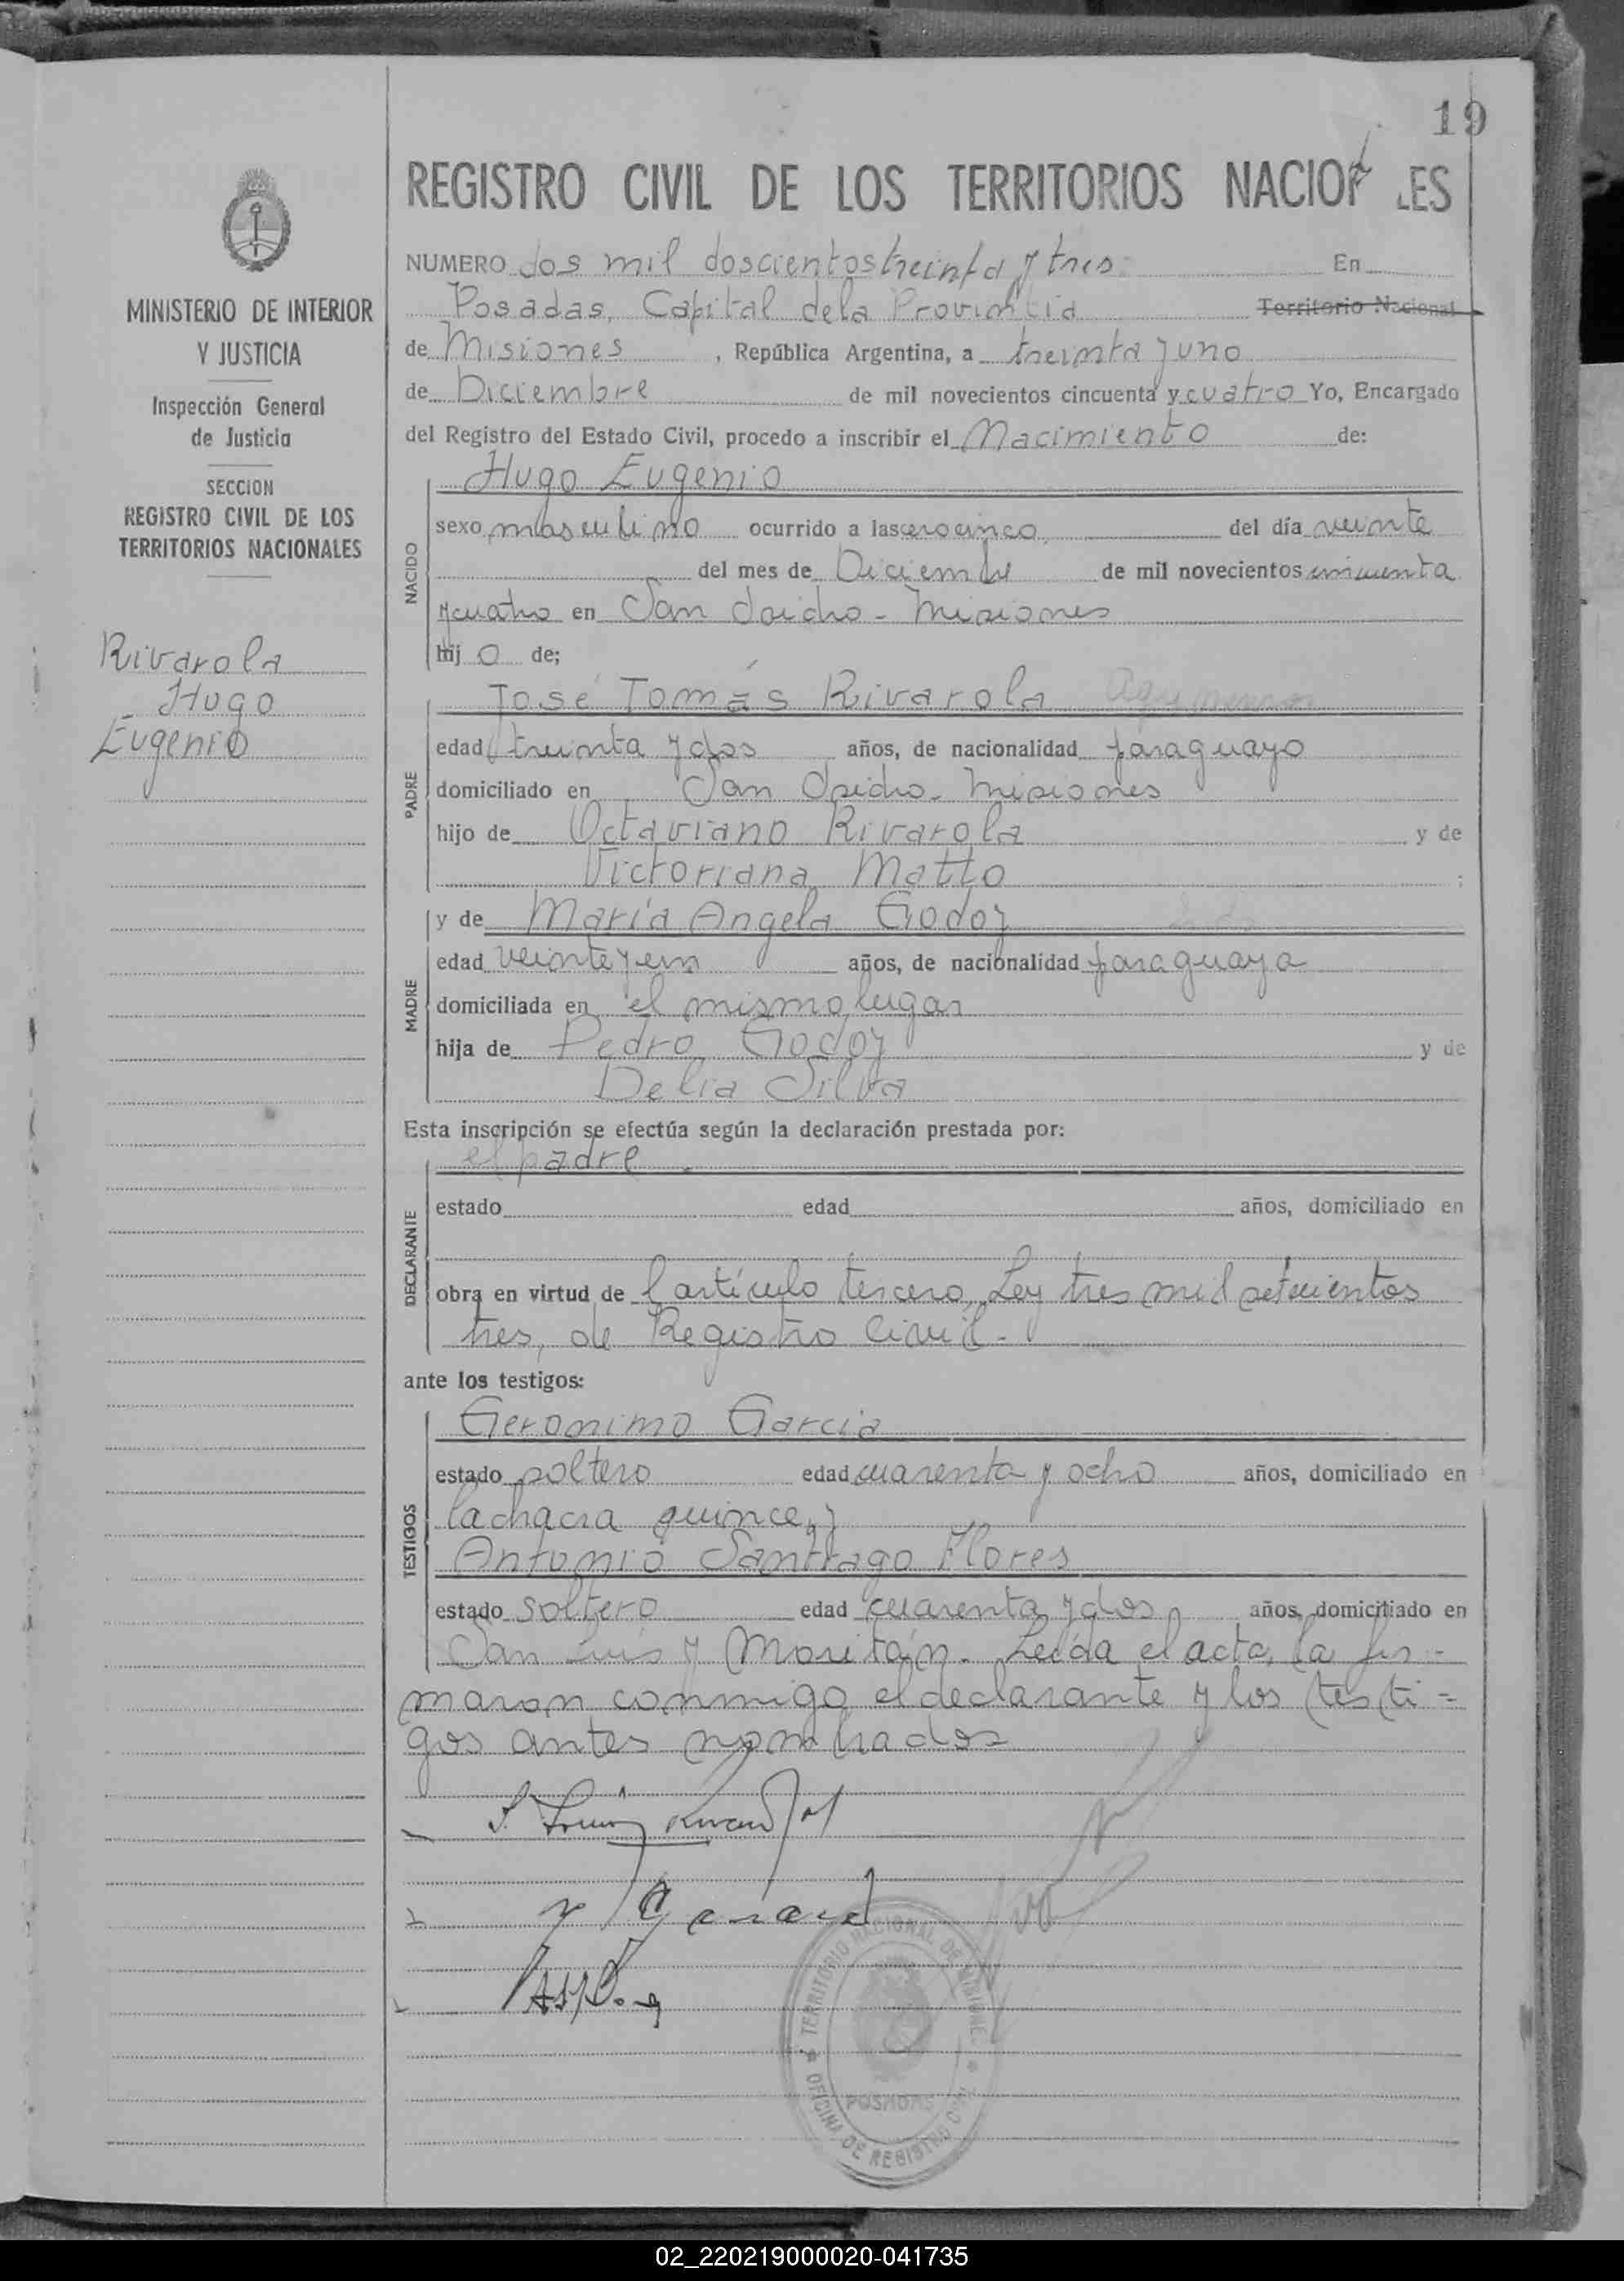 19
REGISTRO CIVIL DE LOS TERRITORIOS NACIO LES
MINISTERIO DE INTERIOR
Y JUSTICIA
Inspección General
de Justicia
SECCION
REGISTRO CIVIL DE LOS
TERRITORIOS NACIONALES
Rivarola
Hugo
Eugenio
NUMERO dos mil doscientos treinta y tres En
Posadas, Capital de la Provincia Territorio Nacional
de Misiones, República Argentina, a treinta y uno
de Diciembre de mil novecientos cincuenta y cuatro Yo, Encargado
del Registro del Estado Civil, procedo a inscribir el Nacimiento de:
NACIDO
Hugo Eugenio
sexo masculino ocurrido a las cero cinco del día veinte
del mes de Diciembre de mil novecientos cincuenta
y cuatro en San Isidro - Misiones
hij o de;
PADRE
José Tomás Rivarola
edad treinta y dos años, de nacionalidad paraguayo
domiciliado en San Isidro - Misiones
hijo de Octaviano Rivarola y de
Victoriana Matto ;
MADRE
y de María Angela Godoy
edad veinte y años, de nacionalidad paraguaya
domiciliada en el mismo lugar
hija de Pedro Godoy y de
Delia Silva
Esta inscripción se efectúa según la declaración prestada por:
DECLARANTE
el padre.
estado edad años, domiciliado en
obra en virtud de l artículo tercero, Ley tres mil setecientos
tres, de Registro Civil.-
ante los testigos:
TESTIGOS
Geronimo Garcia
estado soltero edad cuarenta y ocho años, domiciliado en
la chacra quince, y
Antonio Santiago Flores
estado soltero edad cuarenta y dos años, domiciliado en
San Luis y Moritán. Leída el acta, la fir-
maron conmigo el declarante y los testi=
gos antes nombrados
TERRITORIO NACIONAL DE MISIONES
POSADAS
OFICINA DE REGISTRO CIVIL
02_220219000020-041735